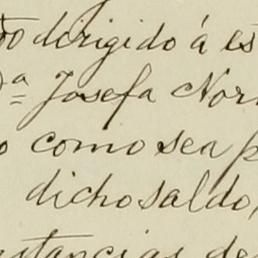 dirigido á es
Dª Josefa Nor
o como sea p
dicho saldo,
stancias de